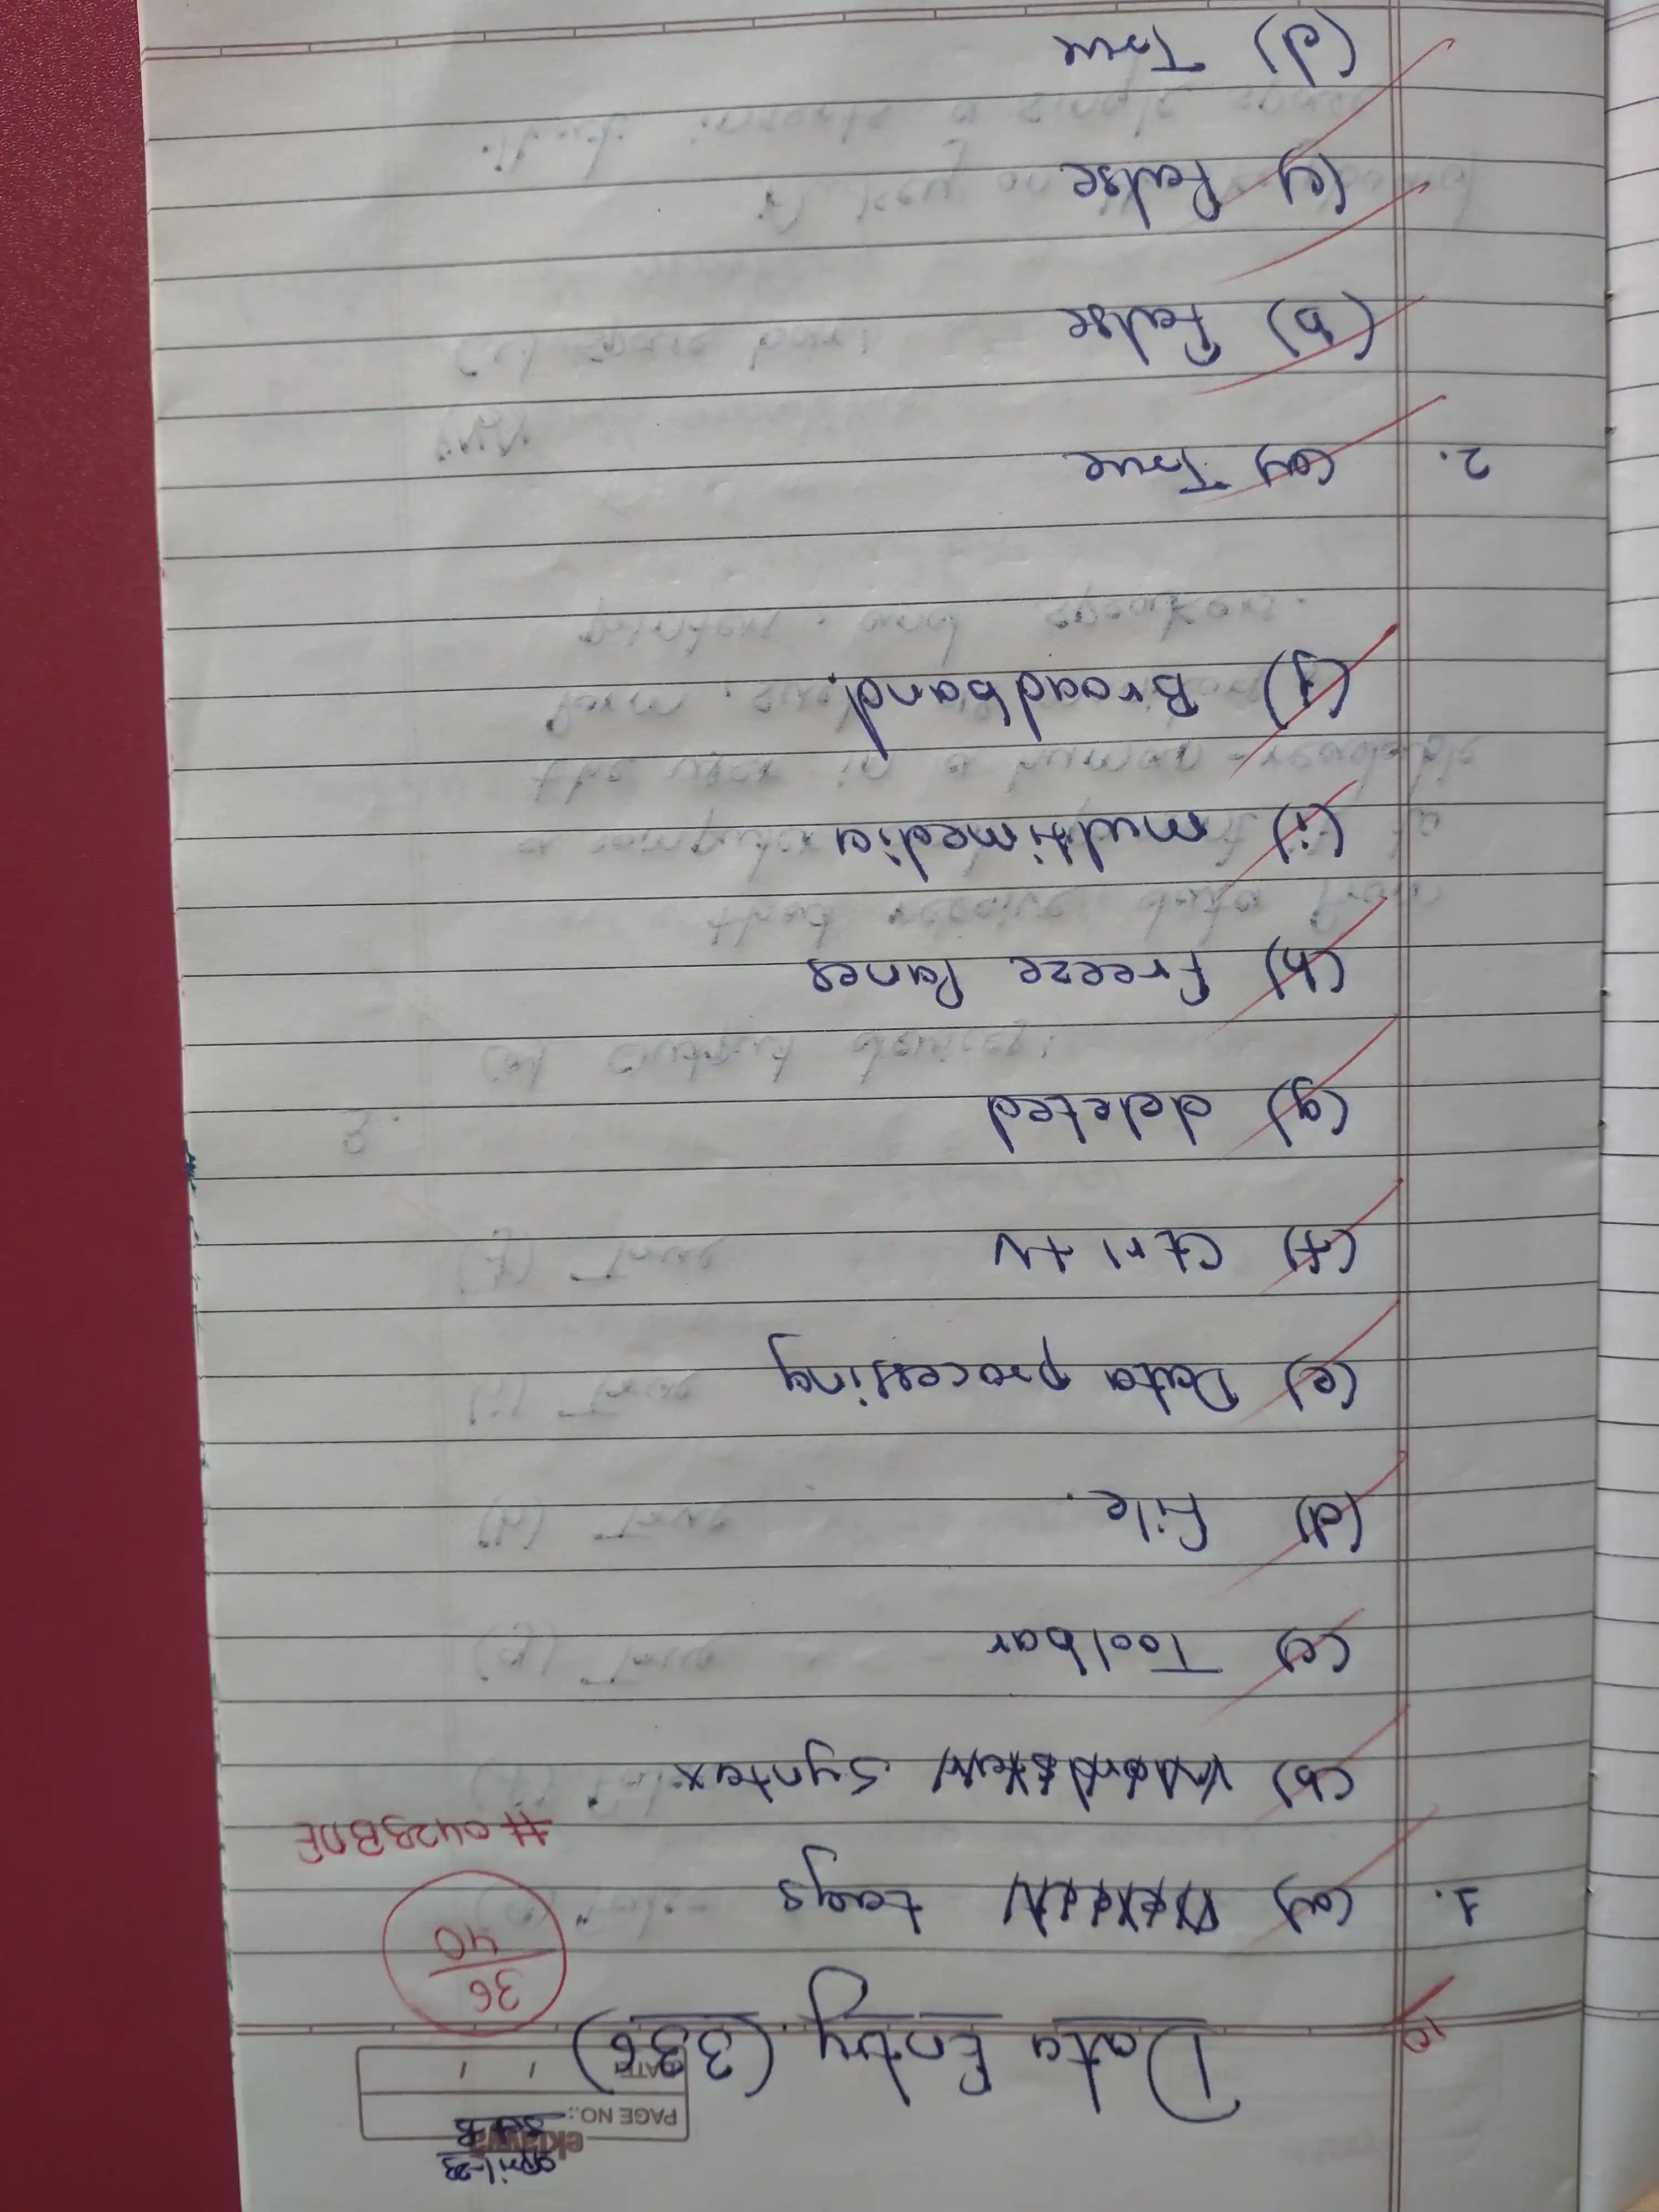 april-23
Set B
eklavya
PAGE NO.:
DATE / /
Data Entry (336)
36
40
#0423BDE
10
1. (a) tags
(b) Syntax
(c) Toolbar
(d) File.
(e) Data processing
(f) Ctrl + N
(g) deleted
(h) Freeze Panes
(i) multimedia
(j) Broadband.
2. (a) True
(b) False
(c) False
(d) True